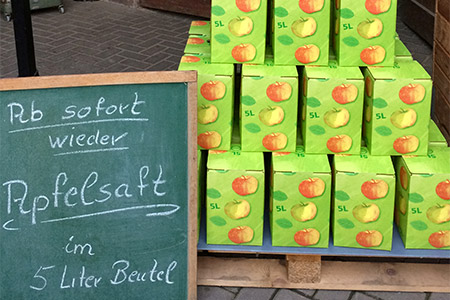 Ab sofort
wieder
Apfelsaft
im
5 Liter Beutel
5L
5L
5L
5L
5L
5L
5L
5L
5L
5L